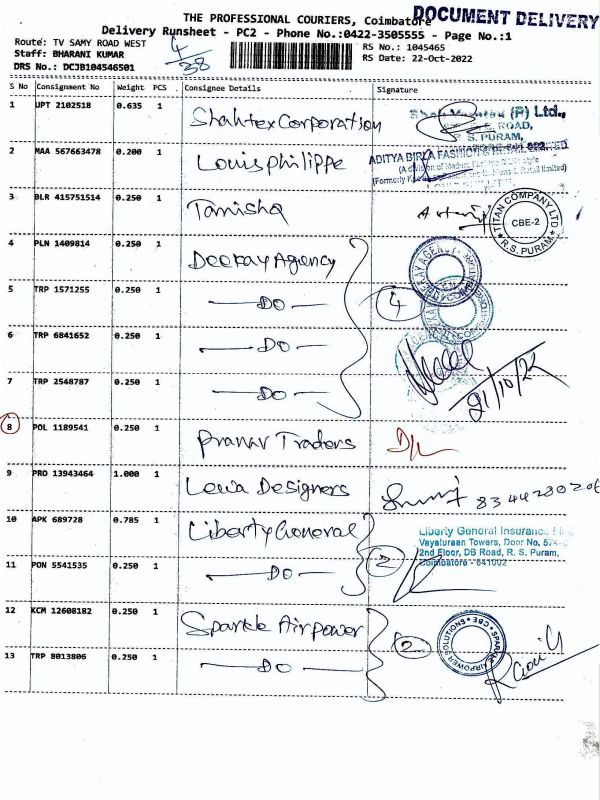 DOCUMENT DELIVERY
THE PROFESSIONAL COURIERS, Coimbatore
Delivery Runsheet - PC2 - Phone No.:0422-3505555 - Page No.:1
Route: TV SAMY ROAD WEST
RS No.: 1045465
Staff: BHARANI KUMAR
RS Date: 22-Oct-2022
DRS No.: DCJB104546501
4/38
S No Consignment No Weight PCS Consignee Details Signature
1 UPT 2102518 0.635 1 Shahtex Corporation
(P) Ltd.,
ROAD,
S. PURAM,
2 MAA 567663478 0.200 1 Louisphilippe
ADITYA BIRLA FASHION & RETAIL LIMITED
3 BLR 415751514 0.250 1 Tanishq
TITAN COMPANY LTD
CBE-2
R.S. PURAM
4 PLN 1409814 0.250 1 Deekay Agency
5 TRP 1571255 0.250 1 DO
4
6 TRP 6841652 0.250 1 DO
7 TRP 2548787 0.250 1 DO
21/10/22
8 POL 1189541 0.250 1 Pranav Traders D/L
9 PRO 13943464 1.000 1 Lewa Designers
10 APK 689728 0.785 1 Liberty General
Liberty General Insurance
Vayaluraan Towers, Door No. 574-C
2nd Floor, DB Road, R. S. Puram,
Coimbatore - 641002
11 PON 5541535 0.250 1 DO 2
12 KCM 12608182 0.250 1 Sparkle Airpower
2
SPARKLE AIRPOWER SOLUTIONS * CBE *
13 TRP 8013806 0.250 1 DO